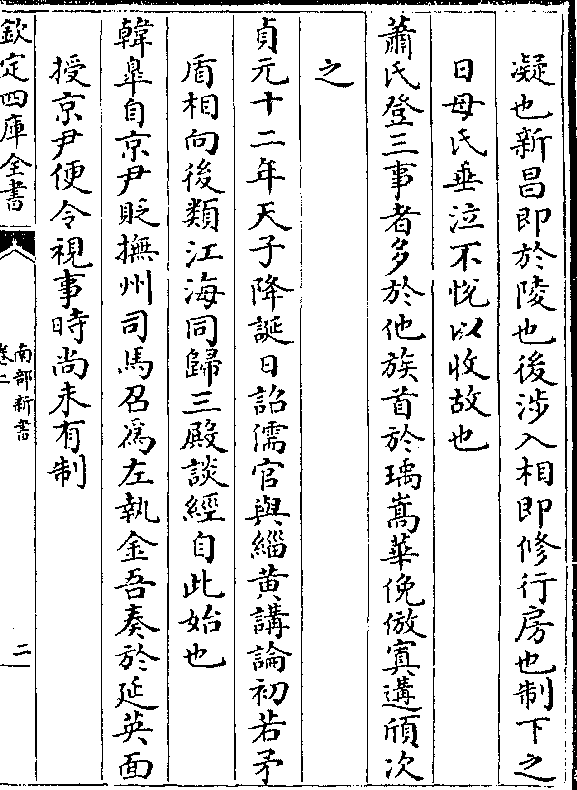 凝也新昌即於陵也後涉入相即修行房也制下之
日母氏垂泣不悅以收故也
蕭氏登三事者多於他族首於瑀嵩華俛倣寘遘頎次
之
貞元十二年天子降誕日詔儒官與緇黃講論初若矛
盾相向後類江海同歸三殿談經自此始也
韓臯自京尹貶撫州司馬召為左執金吾奏於延英面
授京尹便令視事時尚未有制
欽定四庫全書
南部新書
卷二
二